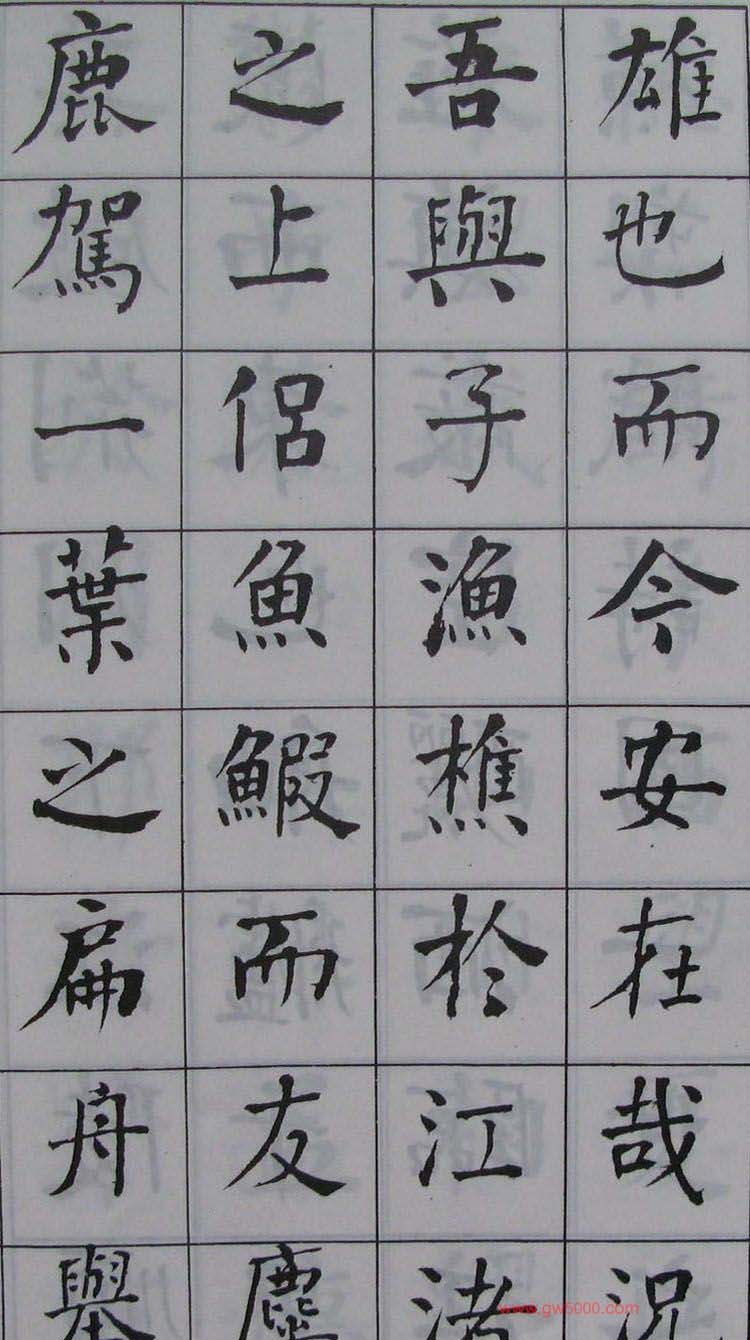 雄也而今安在哉況
吾與子漁樵於江渚
之上侶魚鰕而友麋
鹿駕一葉之扁舟舉
www.gw5000.com